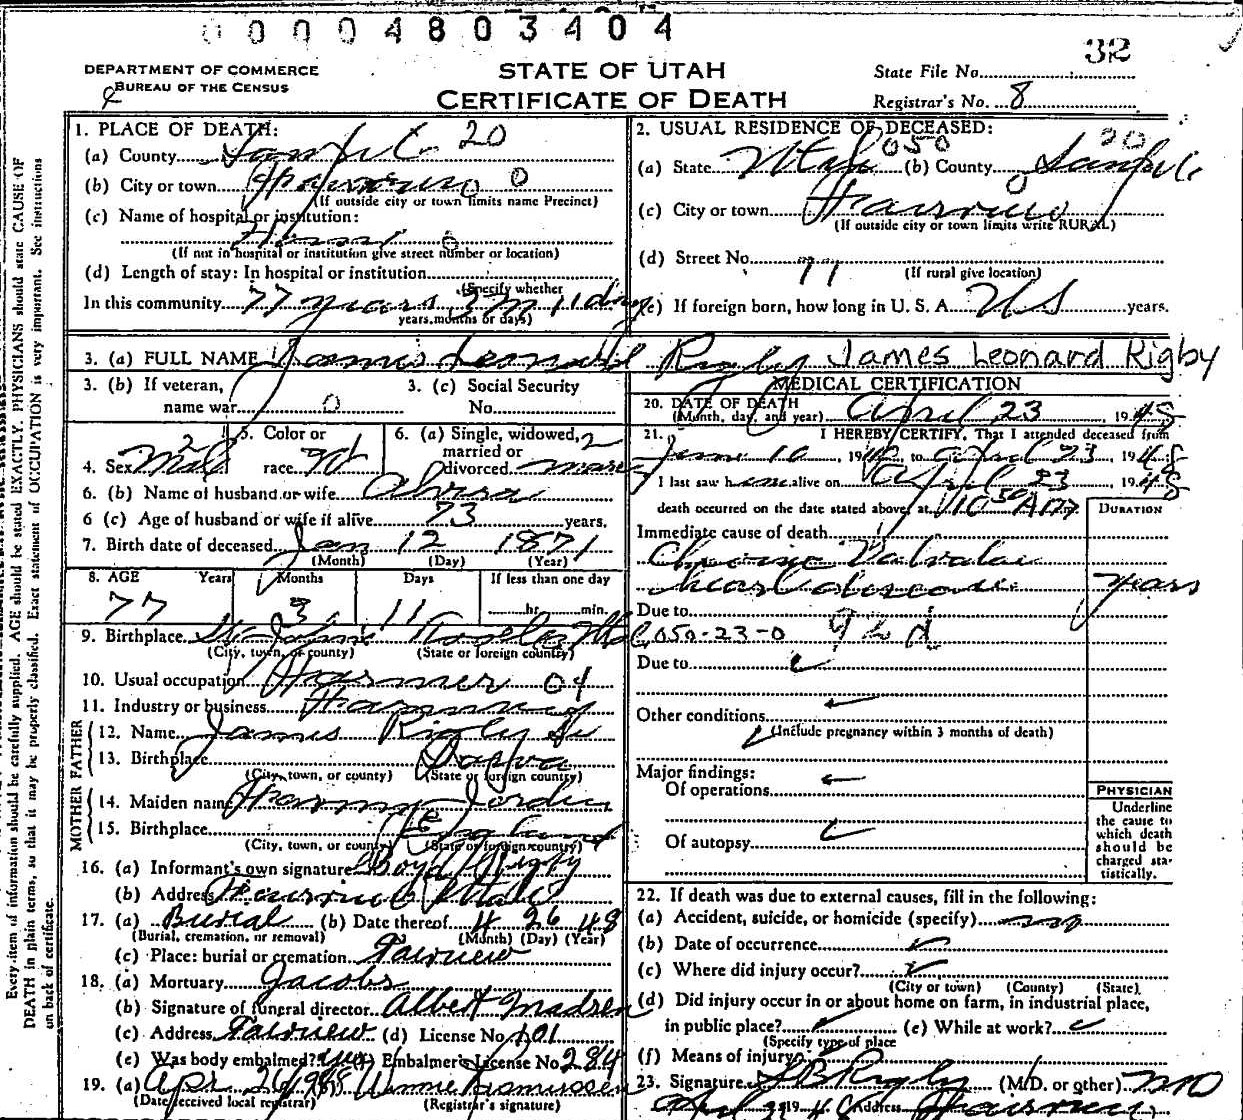 0 0 0 0 4 8 0 3 4 0 4
32
DEPARTMENT OF COMMERCE
BUREAU OF THE CENSUS
STATE OF UTAH
CERTIFICATE OF DEATH
State File No.
Registrar's No. 8
Every item of information should be carefully supplied. AGE should be stated EXACTLY. PHYSICIANS should state CAUSE OF
DEATH in plain terms, so that it may be properly classified. Exact statement of OCCUPATION is very important. See instructions
on back of certificate.
1. PLACE OF DEATH: 20
(a) County Sanpete
(b) City or town Fairview 0
(If outside city or town limits name Precinct)
(c) Name of hospital or institution:
Home 0
(If not in hospital or institution give street number or location)
(d) Length of stay: In hospital or institution
(Specify whether
In this community 77 years 3 m 11 days
years, months or days)
2. USUAL RESIDENCE OF DECEASED:
(a) State Utah 050 (b) County Sanpete 20
(c) City or town Fairview 0
(If outside city or town limits write RURAL)
(d) Street No.
(If rural give location)
(e) If foreign born, how long in U. S. A. US years.
3. (a) FULL NAME James Leonard Rigby James Leonard Rigby
3. (b) If veteran,
name war 0
3. (c) Social Security
No.
4. Sex Male 2
5. Color or
race W
6. (a) Single, widowed, 2
married or
divorced
6. (b) Name of husband or wife
6 (c) Age of husband or wife if alive 73 years.
7. Birth date of deceased Jan 12 1871
(Month) (Day) (Year)
8. AGE Years Months Days If less than one day
77 3 11 hr. min.
9. Birthplace St. Johns Utah
(City, town, or county) (State or foreign country)
10. Usual occupation Farmer 01
11. Industry or business Farming
FATHER
12. Name James Rigby Sr
13. Birthplace
(City, town, or county) (State or foreign country)
MOTHER
14. Maiden name
15. Birthplace England
(City, town, or county) (State or foreign country)
16. (a) Informant's own signature Boyd Rigby
(b) Address Fairview Utah
17. (a) Burial (b) Date thereof 4 26 48
(Burial, cremation, or removal) (Month) (Day) (Year)
(c) Place: burial or cremation Fairview
18. (a) Mortuary Jacobs
(b) Signature of funeral director Albert Madsen
(c) Address Fairview (d) License No. 101
(e) Was body embalmed? yes (f) Embalmer's License No. 284
19. (a) Apr. 26, 1948 Winnie Rasmussen
(Date received local registrar) (Registrar's signature)
MEDICAL CERTIFICATION
20. DATE OF DEATH
(Month, day, and year) April 23, 1948
21. I HEREBY CERTIFY, That I attended deceased from
June 10, 19 to April 23, 1948
I last saw him alive on April 23, 1948
death occurred on the date stated above, at 10 50 A m.
DURATION
Immediate cause of death
Chronic Valvular
heart disease years
Due to
050-23-0 92 d
Due to
Other conditions
(Include pregnancy within 3 months of death)
Major findings:
Of operations
Of autopsy
PHYSICIAN
Underline
the cause to
which death
should be
charged sta-
tistically.
22. If death was due to external causes, fill in the following:
(a) Accident, suicide, or homicide (specify) no
(b) Date of occurrence
(c) Where did injury occur?
(City or town) (County) (State)
(d) Did injury occur in or about home on farm, in industrial place,
in public place? (e) While at work?
(Specify type of place
(f) Means of injury
23. Signature Rigby (M.D. or other) MD
April 1948 Address Fairview